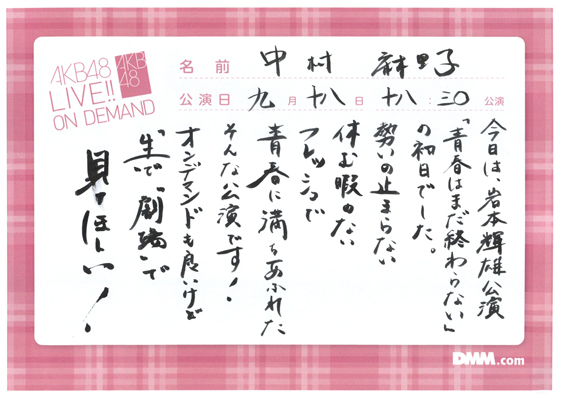 AKB48
LIVE!!
ON DEMAND
AKB
48
名前 中村 麻里子
公演日 九月 十八日 十八:三〇 公演
今日は、岩本輝雄公演
「青春はまだ終わらない」
の初日でした。
勢いの止まらない
休む暇のない
フレッシュで
青春に満ちあふれた
そんな公演です!
オンデマンドも良いけど
“生で”「劇場」で
見てほしい!
DMM.com